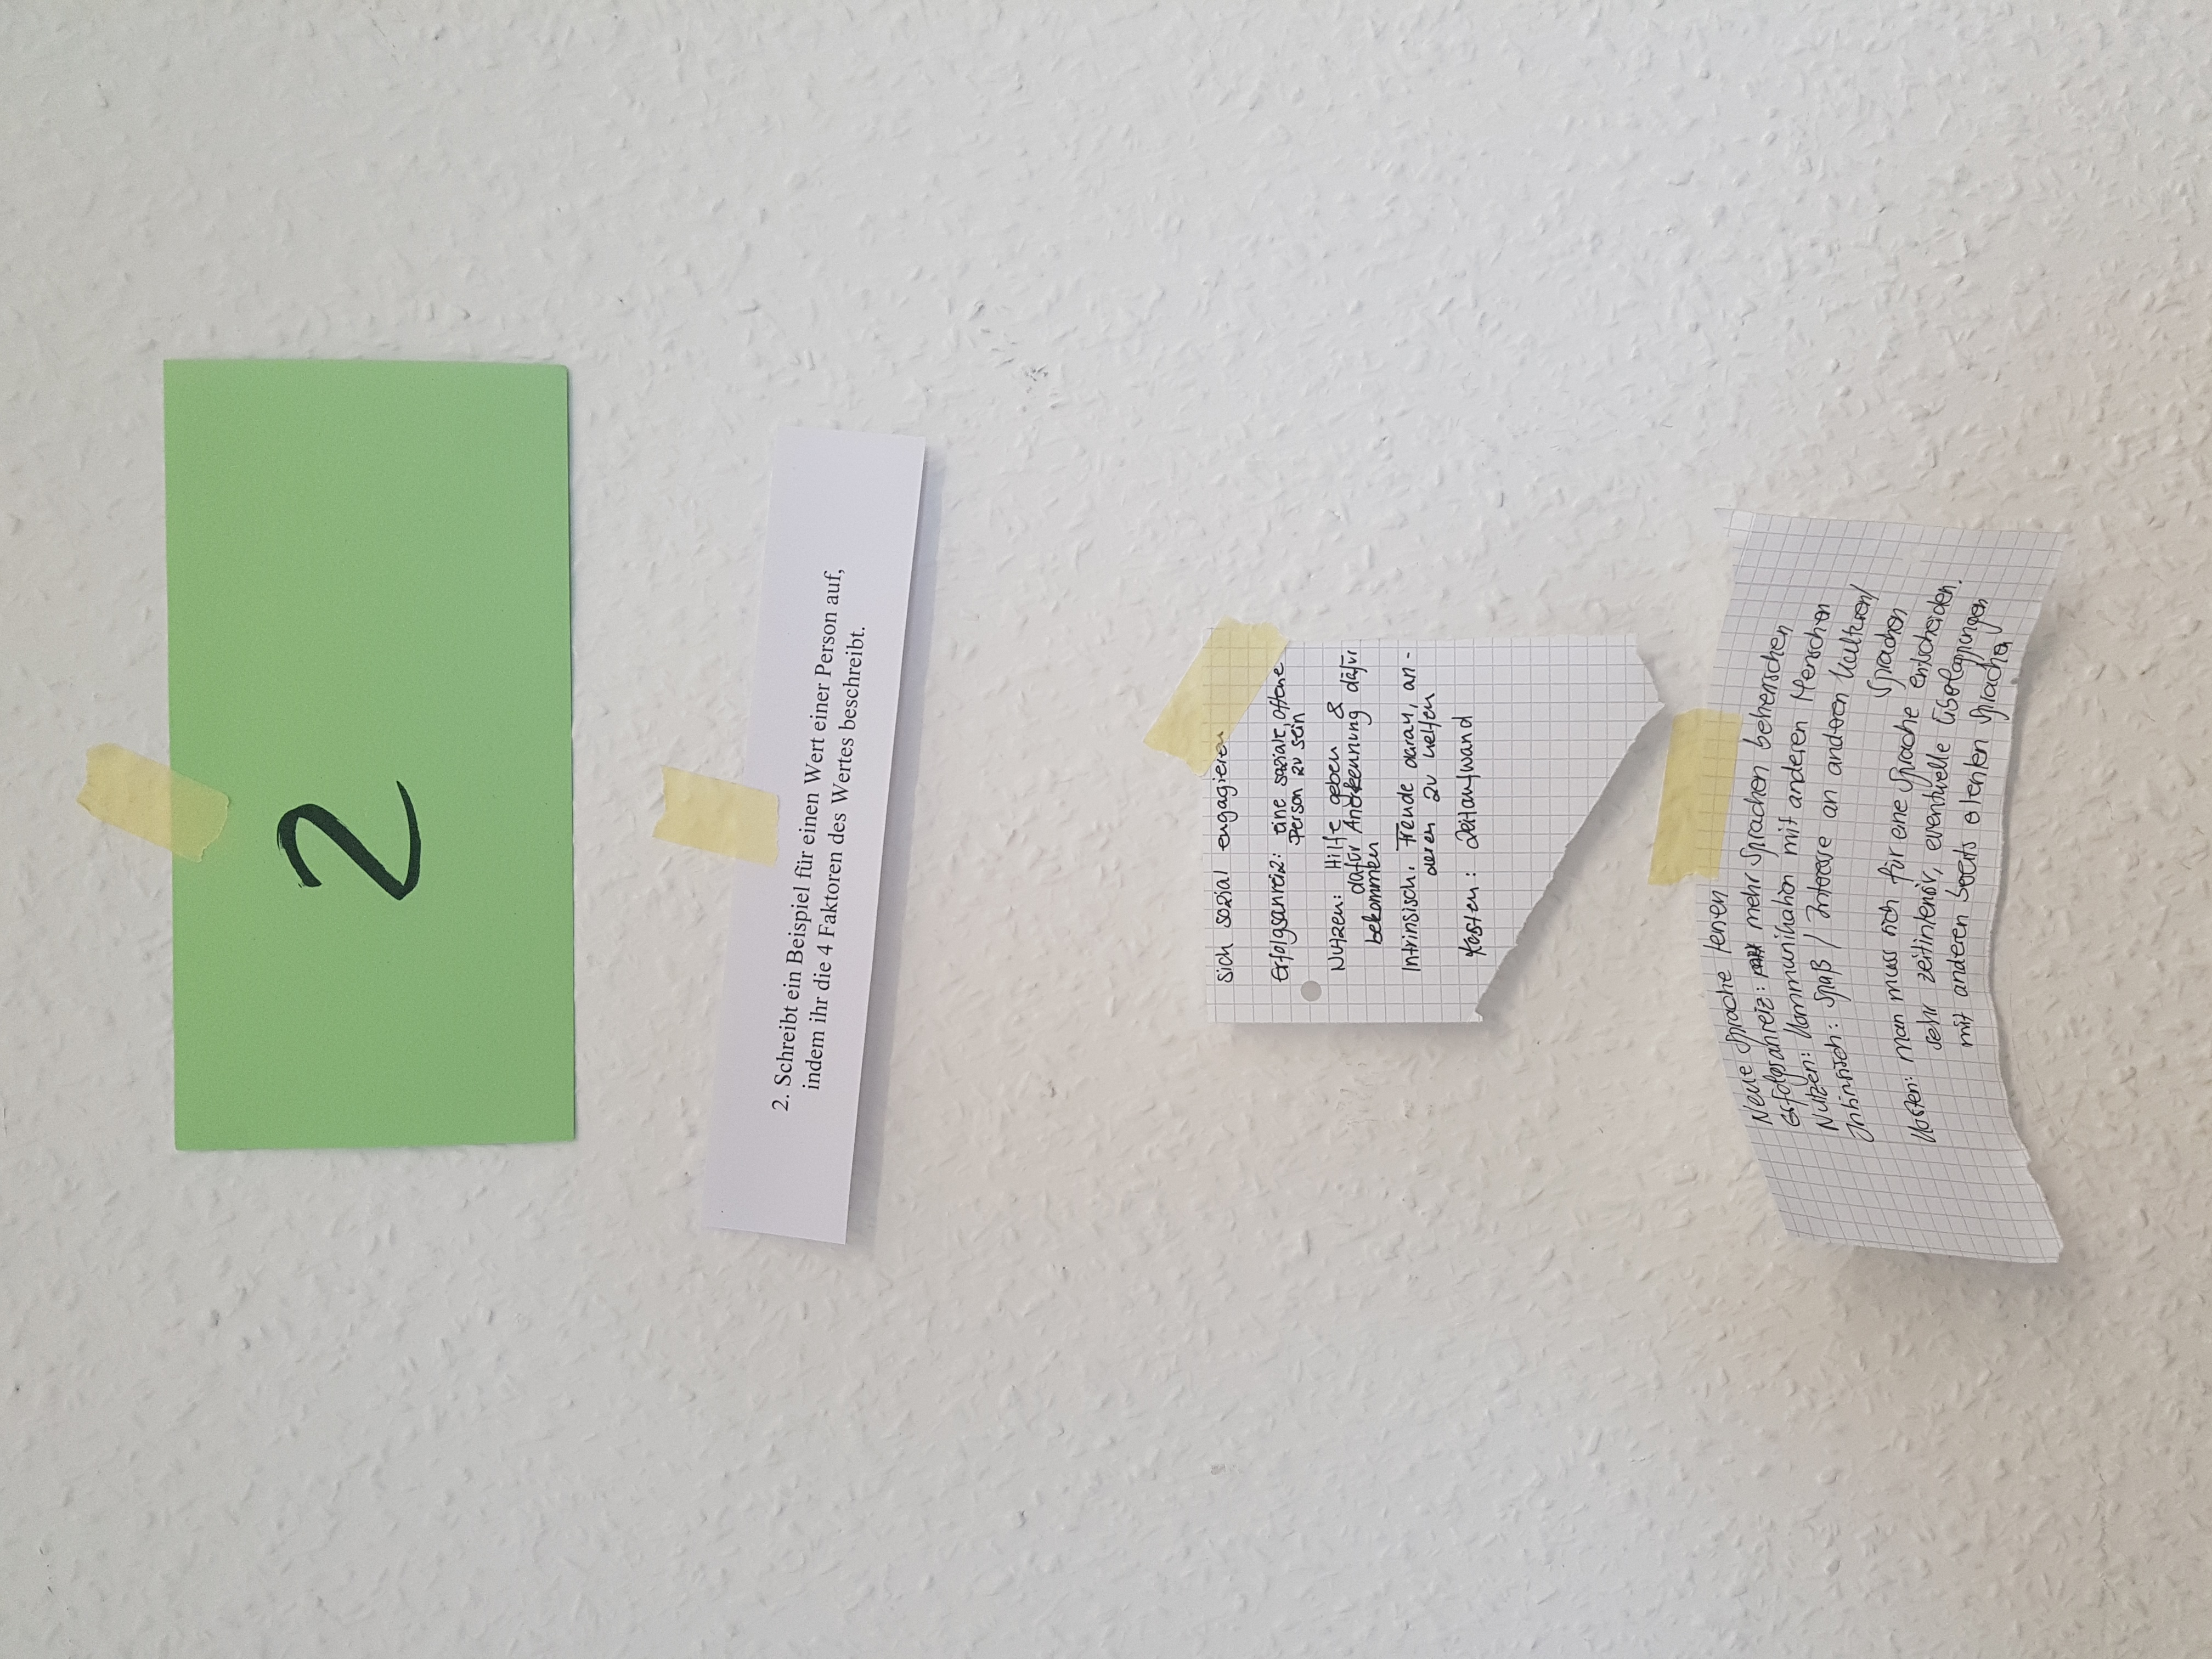 2
2. Schreibt ein Beispiel für einen Wert einer Person auf,
indem ihr die 4 Faktoren des Wertes beschreibt.
sich sozial engagieren
Erfolgsanreiz: eine soziale, offene
Person zu sein
Nutzen: Hilfe geben &
dafür Anerkennung dafür
bekommen
Intrinsisch: Freude daran, an-
deren zu helfen
Kosten: Zeitaufwand
Neue Sprache lernen
Erfolgsanreiz: mehr Sprachen beherrschen
Nutzen: Kommunikation mit anderen Menschen
Intrinsisch: Spaß / Interesse an anderen Kulturen/
Sprachen
Kosten: man muss sich für eine Sprache entscheiden.
sehr zeitintensiv, eventuelle Überlappungen
mit anderen bereits erlernten Sprachen